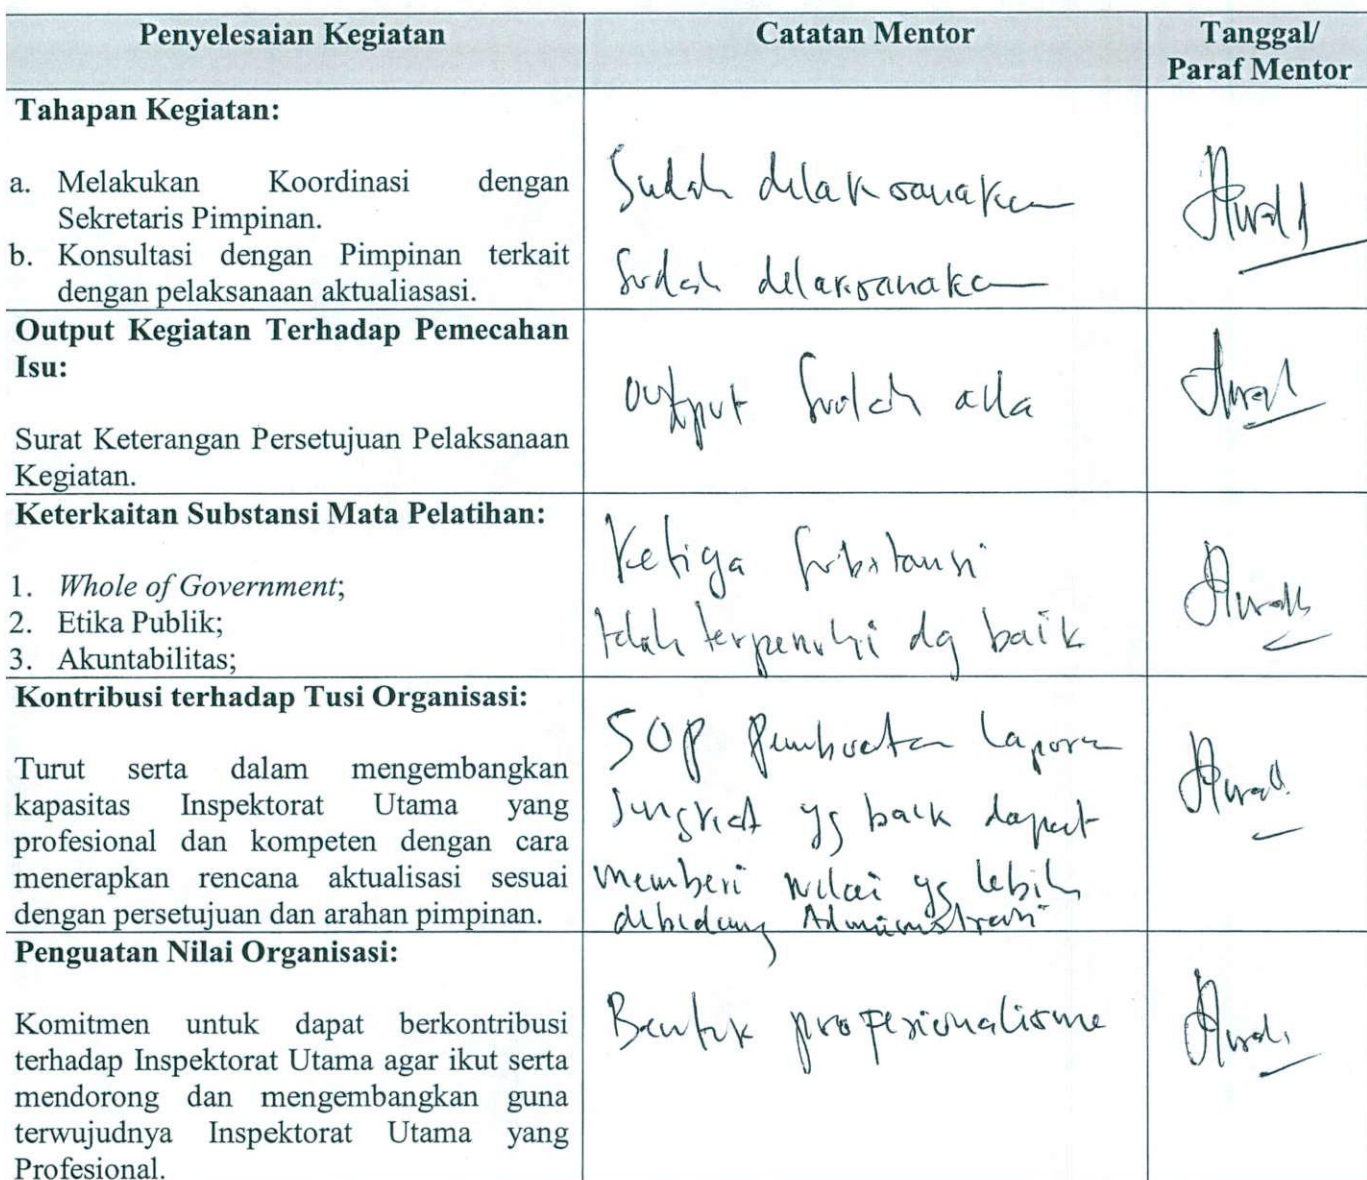 Penyelesaian Kegiatan
Catatan Mentor
Tanggal/
Paraf Mentor
Tahapan Kegiatan:
a. Melakukan Koordinasi dengan
Sekretaris Pimpinan.
b. Konsultasi dengan Pimpinan terkait
dengan pelaksanaan aktualiasasi.
Sudah dilaksanakan
Sudah dilaksanakan
Output Kegiatan Terhadap Pemecahan
Isu:
Surat Keterangan Persetujuan Pelaksanaan
Kegiatan.
output Sudah ada
Keterkaitan Substansi Mata Pelatihan:
1. Whole of Government;
2. Etika Publik;
3. Akuntabilitas;
Ketiga Substansi
telah terpenuhi dg baik
Kontribusi terhadap Tusi Organisasi:
Turut serta dalam mengembangkan
kapasitas Inspektorat Utama yang
profesional dan kompeten dengan cara
menerapkan rencana aktualisasi sesuai
dengan persetujuan dan arahan pimpinan.
SOP Pembuatan Laporan
yg baik dapat
memberi nilai yg lebih
dibidang Administrasi
Penguatan Nilai Organisasi:
Komitmen untuk dapat berkontribusi
terhadap Inspektorat Utama agar ikut serta
mendorong dan mengembangkan guna
terwujudnya Inspektorat Utama yang
Profesional.
Bentuk profesionalisme